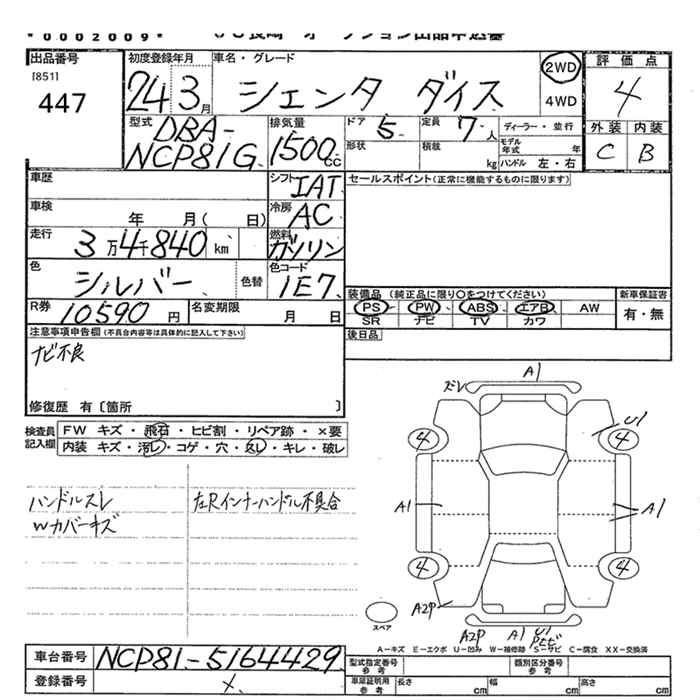 *0002009*
出品番号
[851]
447
初度登録年月
24年3月
車名・グレード
シエンタ ダイス
2WD
4WD
評価点
4
外装 内装
C B
型式
DBA-
NCP81G
排気量
1500cc
ドア 5 定員 7人
形状 積載 kg
ディーラー・並行
モデル年式 年
ハンドル 左・右
車歴
シフト IAT
セールスポイント(正常に機能するものに限ります)
車検 年 月( 日)
冷房 AC
走行 3万4千840km
燃料 ガソリン
色 シルバー 色替
色コード 1E7
R券 10590円
名変期限 月 日
装備品(純正品に限り○をつけてください)
PS PW ABS エアB AW
SR ナビ TV カワ
新車保証書
有・無
後日品
注意事項申告欄(不具合内容等は具体的に記入して下さい)
ナビ不良
修復歴 有〔箇所 〕
検査員記入欄
FW キズ・飛石・ヒビ割・リペア跡・×要
内装 キズ・汚レ・コゲ・穴・スレ・キレ・破レ
ハンドルスレ
Wカバーキズ
左Rインナーハンドル不具合
ズレ
A1
U1
4
4
A1
A1
4
4
A2P
A2P
A1
U1
スペア
A-キズ E-エクボ U-凹み W-補修跡 S-サビ C-腐食 XX-交換済
車台番号
NCP81-5164429
登録番号
型式指定番号
参考
類別区分番号
参考
車庫証明用
参考
長さ cm
幅 cm
高さ cm